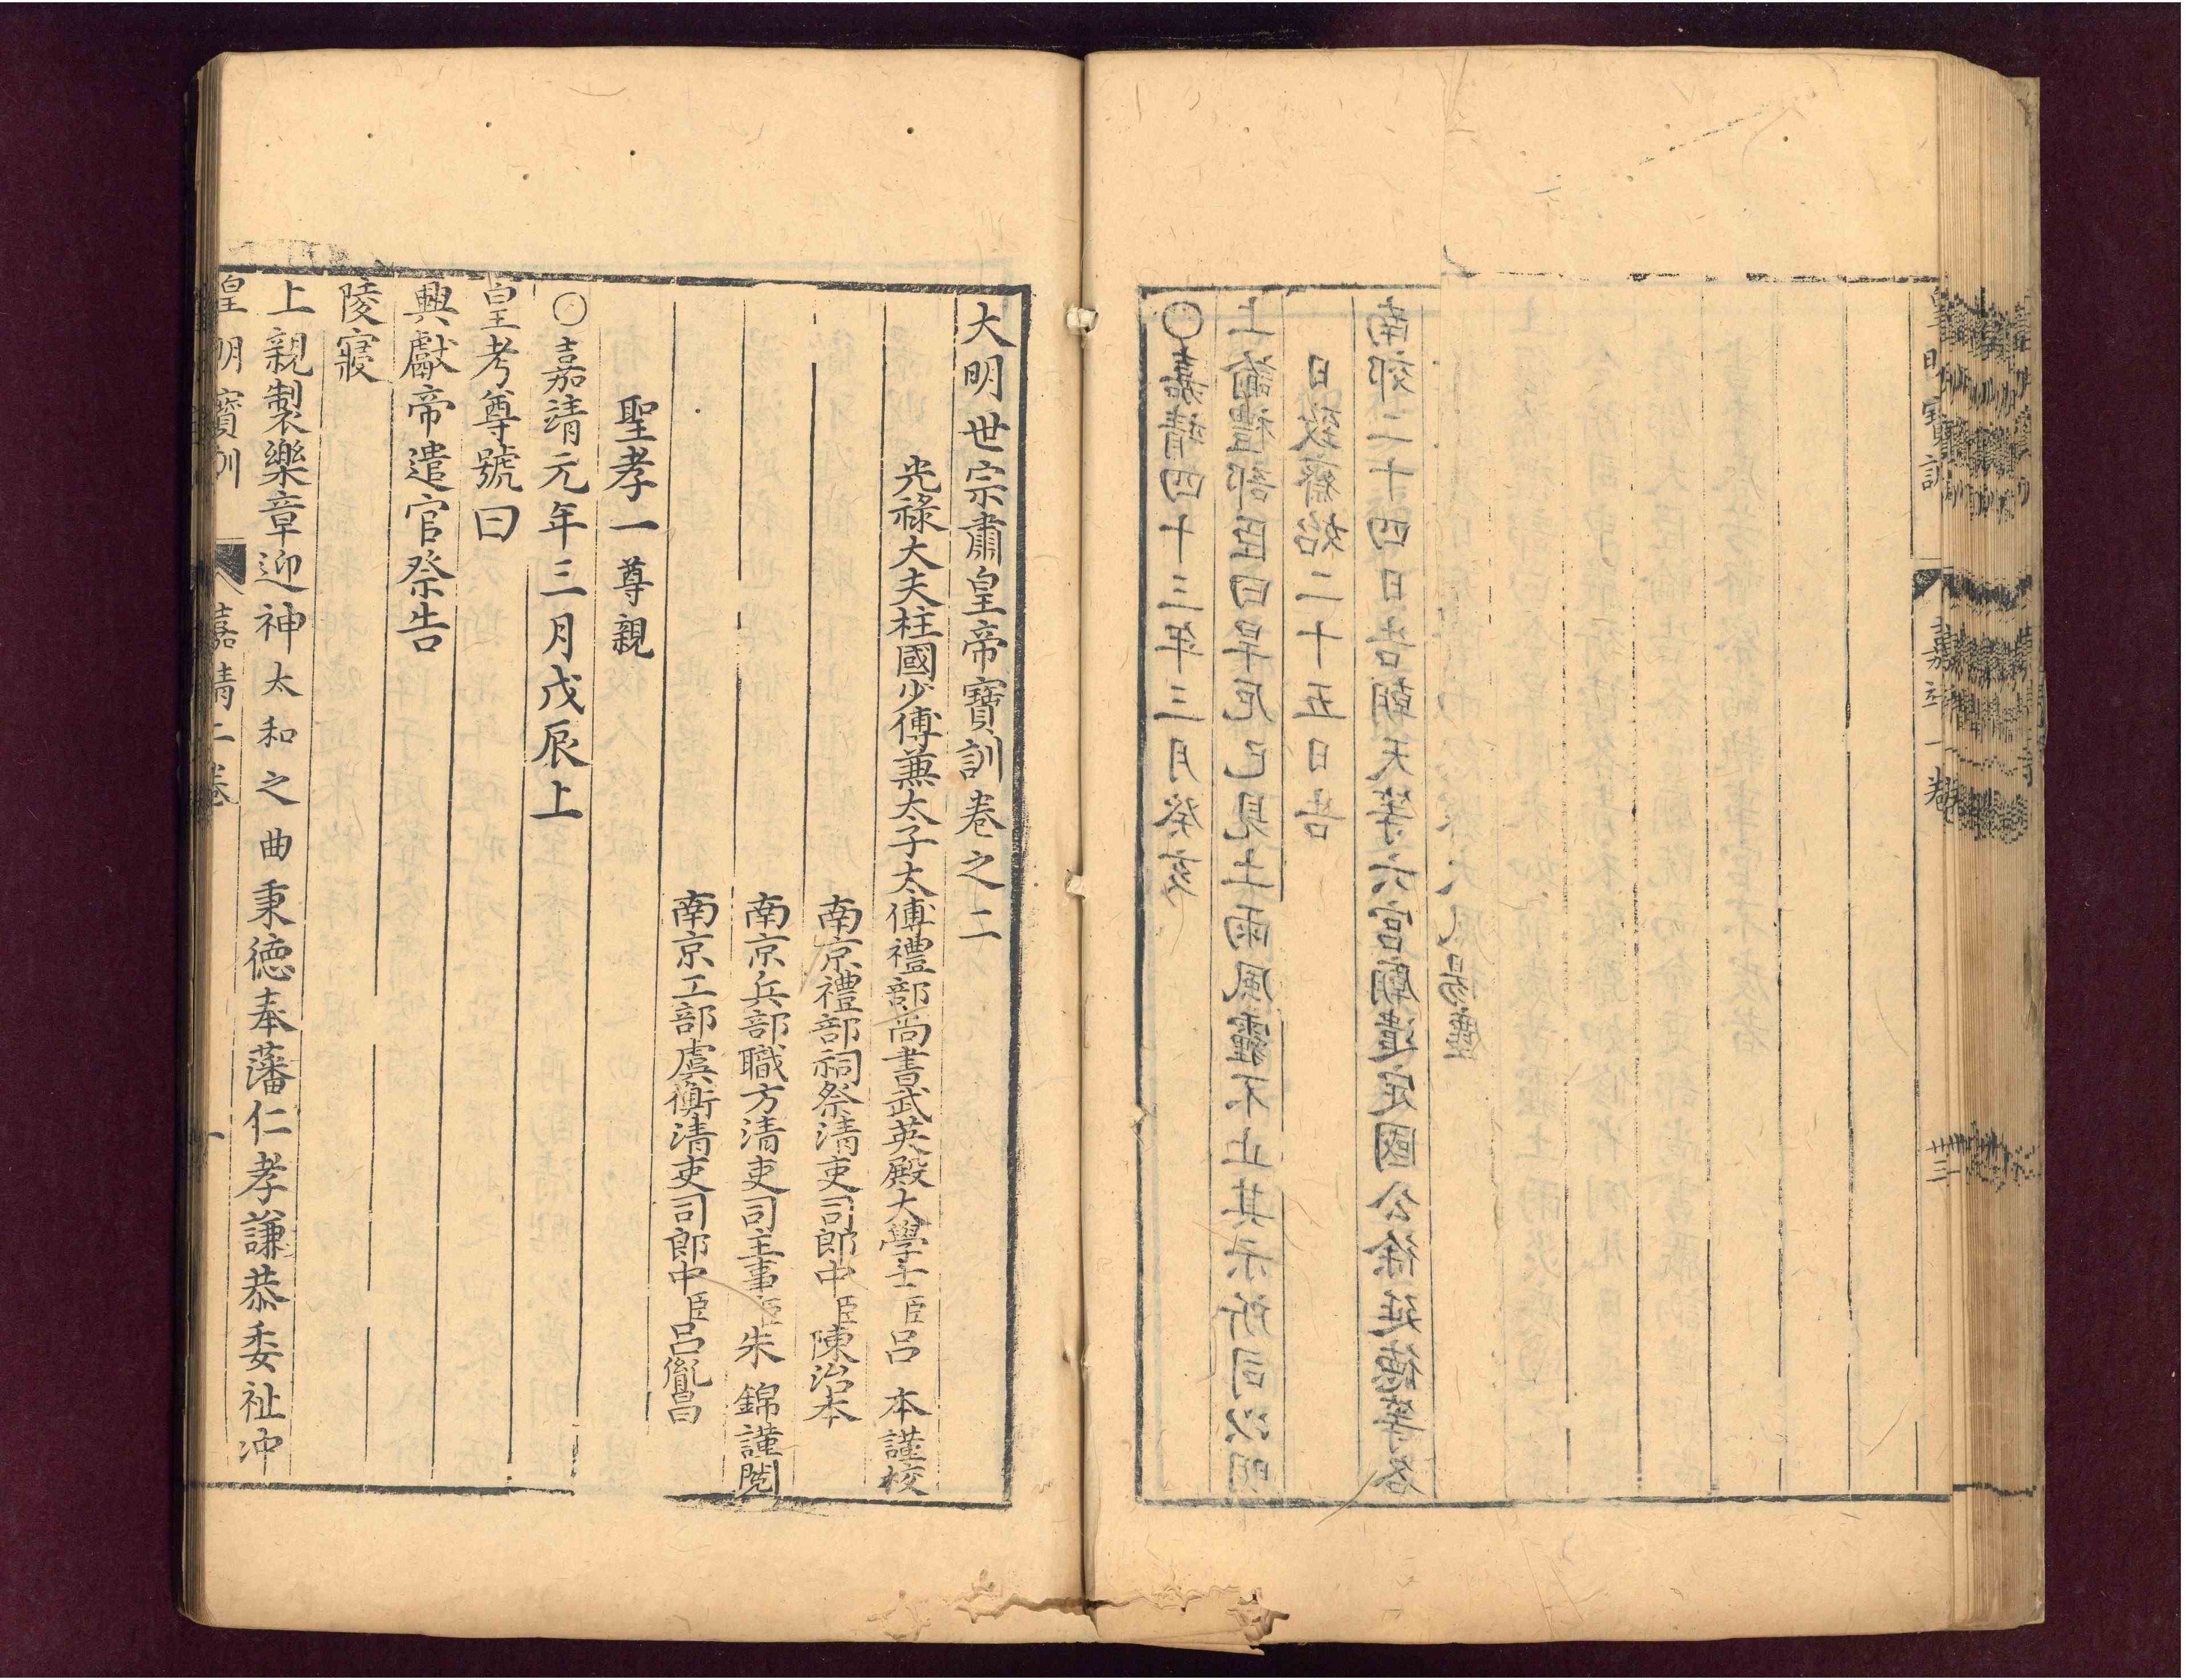 皇明寶訓 嘉靖一卷 卅三
○嘉靖四十三年三月癸亥
上諭禮部臣曰旱厄已見土雨風霾不止其示所司以明
日致齋始二十五日告
南郊二十四日告朝天等六宮廟遣定國公徐延德等各
大風揚塵
大明世宗肅皇帝寶訓卷之二
光祿大夫柱國少傅兼太子太傅禮部尚書武英殿大學士臣呂 本謹校
南京禮部祠祭清吏司郎中臣陳治本
南京兵部職方清吏司主事臣朱 錦謹閱
南京工部虞衡清吏司郎中臣呂胤昌
聖孝一 尊親
○嘉清元年三月戊辰上
皇考尊號曰
興獻帝遣官祭告
陵寢
上親製樂章迎神太和之曲秉德奉藩仁孝謙恭委祉冲
皇明寶訓 嘉靖二卷 一